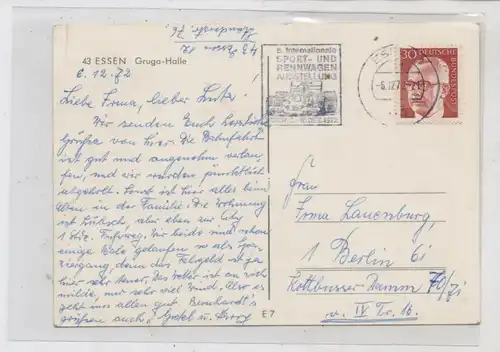 43 Essen 12
43 ESSEN Gruga-Halle
6.12.72
Liebe Irma, lieber Lutz!
Wir senden Euch herzliche
Grüße von hier. Die Bahnfahrt
ist gut und angenehm verlau-
fen, und wir wurden pünktlich
abgeholt. Sonst ist hier alles beim
Alten in der Familie. Die Wohnung
ist hübsch, aber eben zur City
1 Std. Fußweg. Wir beide sind schon
einige Male gelaufen so als Spa-
ziergang, denn das Fahrgeld ist ja
sehr teuer. Das Wetter ist an sich
milde, nur sehr viel Wind. Also es
geht uns allen gut. Bernhardt's
grüßen auch,
E 7
5. Internationale
SPORT- UND
RENNWAGEN
AUSSTELLUNG
-6.12.72
30
DEUTSCHE
BUNDESPOST
Frau
Irma Lauenburg,
1 Berlin 61
Kottbusser Damm 70/71
v. IV Tr.